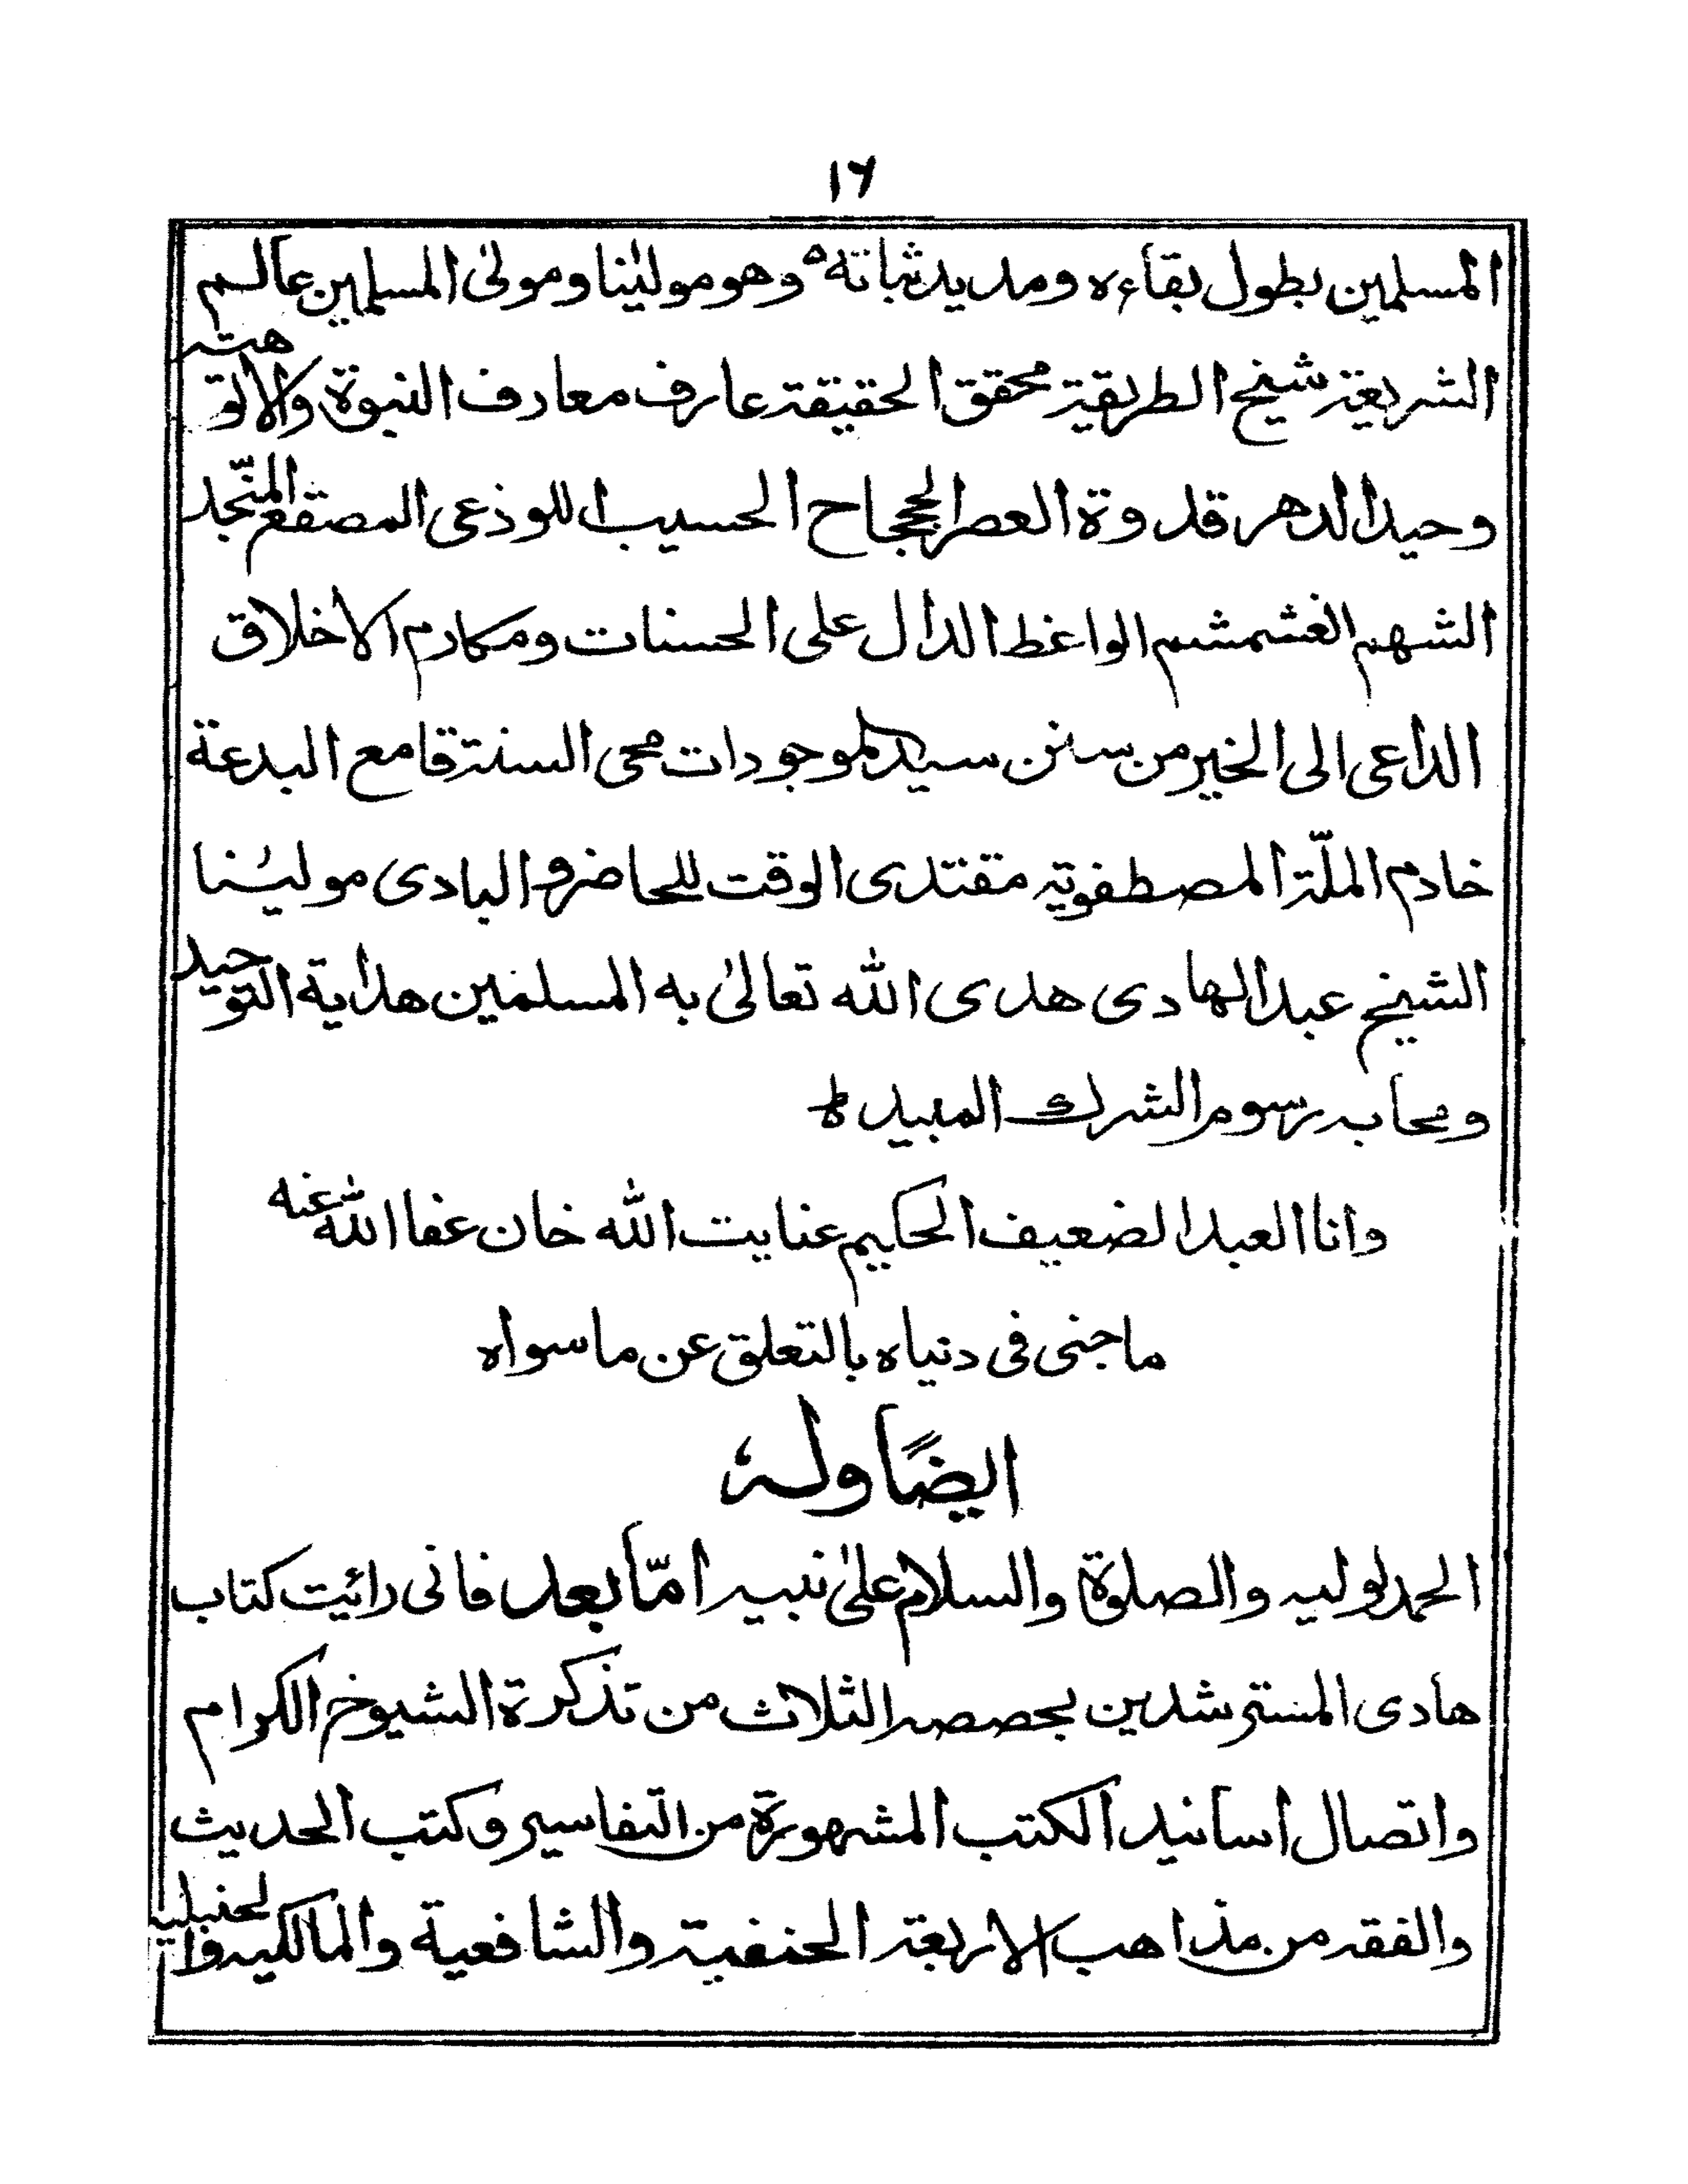 ١٦
المسلمين بطول بقاءه ومديد ثباته وهو مولٰينا ومولی المسلمين عالم
الشريعة شيخ الطريقة محقق الحقيقة عارف معارف النبوة والالوهتہ
وحيد الدهر قدوة العصر الججاح الحسيب اللوذعی المصقع المنّجد
الشهم الغشمشم الواعظ الدال علی الحسنات ومكارم الاخلاق
الداعی الی الخير من سنن سيد الموجودات محی السنة قامع البدعة
خادم الملّة المصطفوية مقتدی الوقت للحاضر والبادی مولينا
الشيخ عبد الهادی هدی الله تعالیٰ به المسلمين هداية التوحيد
ومحا به رسوم الشرك المبيد ط
وانا العبد الضعيف الحكيم عنايت الله خان عفا الله عنه
ما جنی فی دنياه بالتعلق عن ما سواه
ايضًا وله
الحمد لوليه والصلوة والسلام علیٰ نبيه امّا بعد فانی رائيت كتاب
هادی المسترشدين بحصصه الثلاث من تذكرة الشيوخ الكرام
واتصال اسانيد الكتب المشهورة من التفاسير وكتب الحديث
والفقه من مذاهب الاربعة الحنفية والشافعية والمالكيه والحنبليه